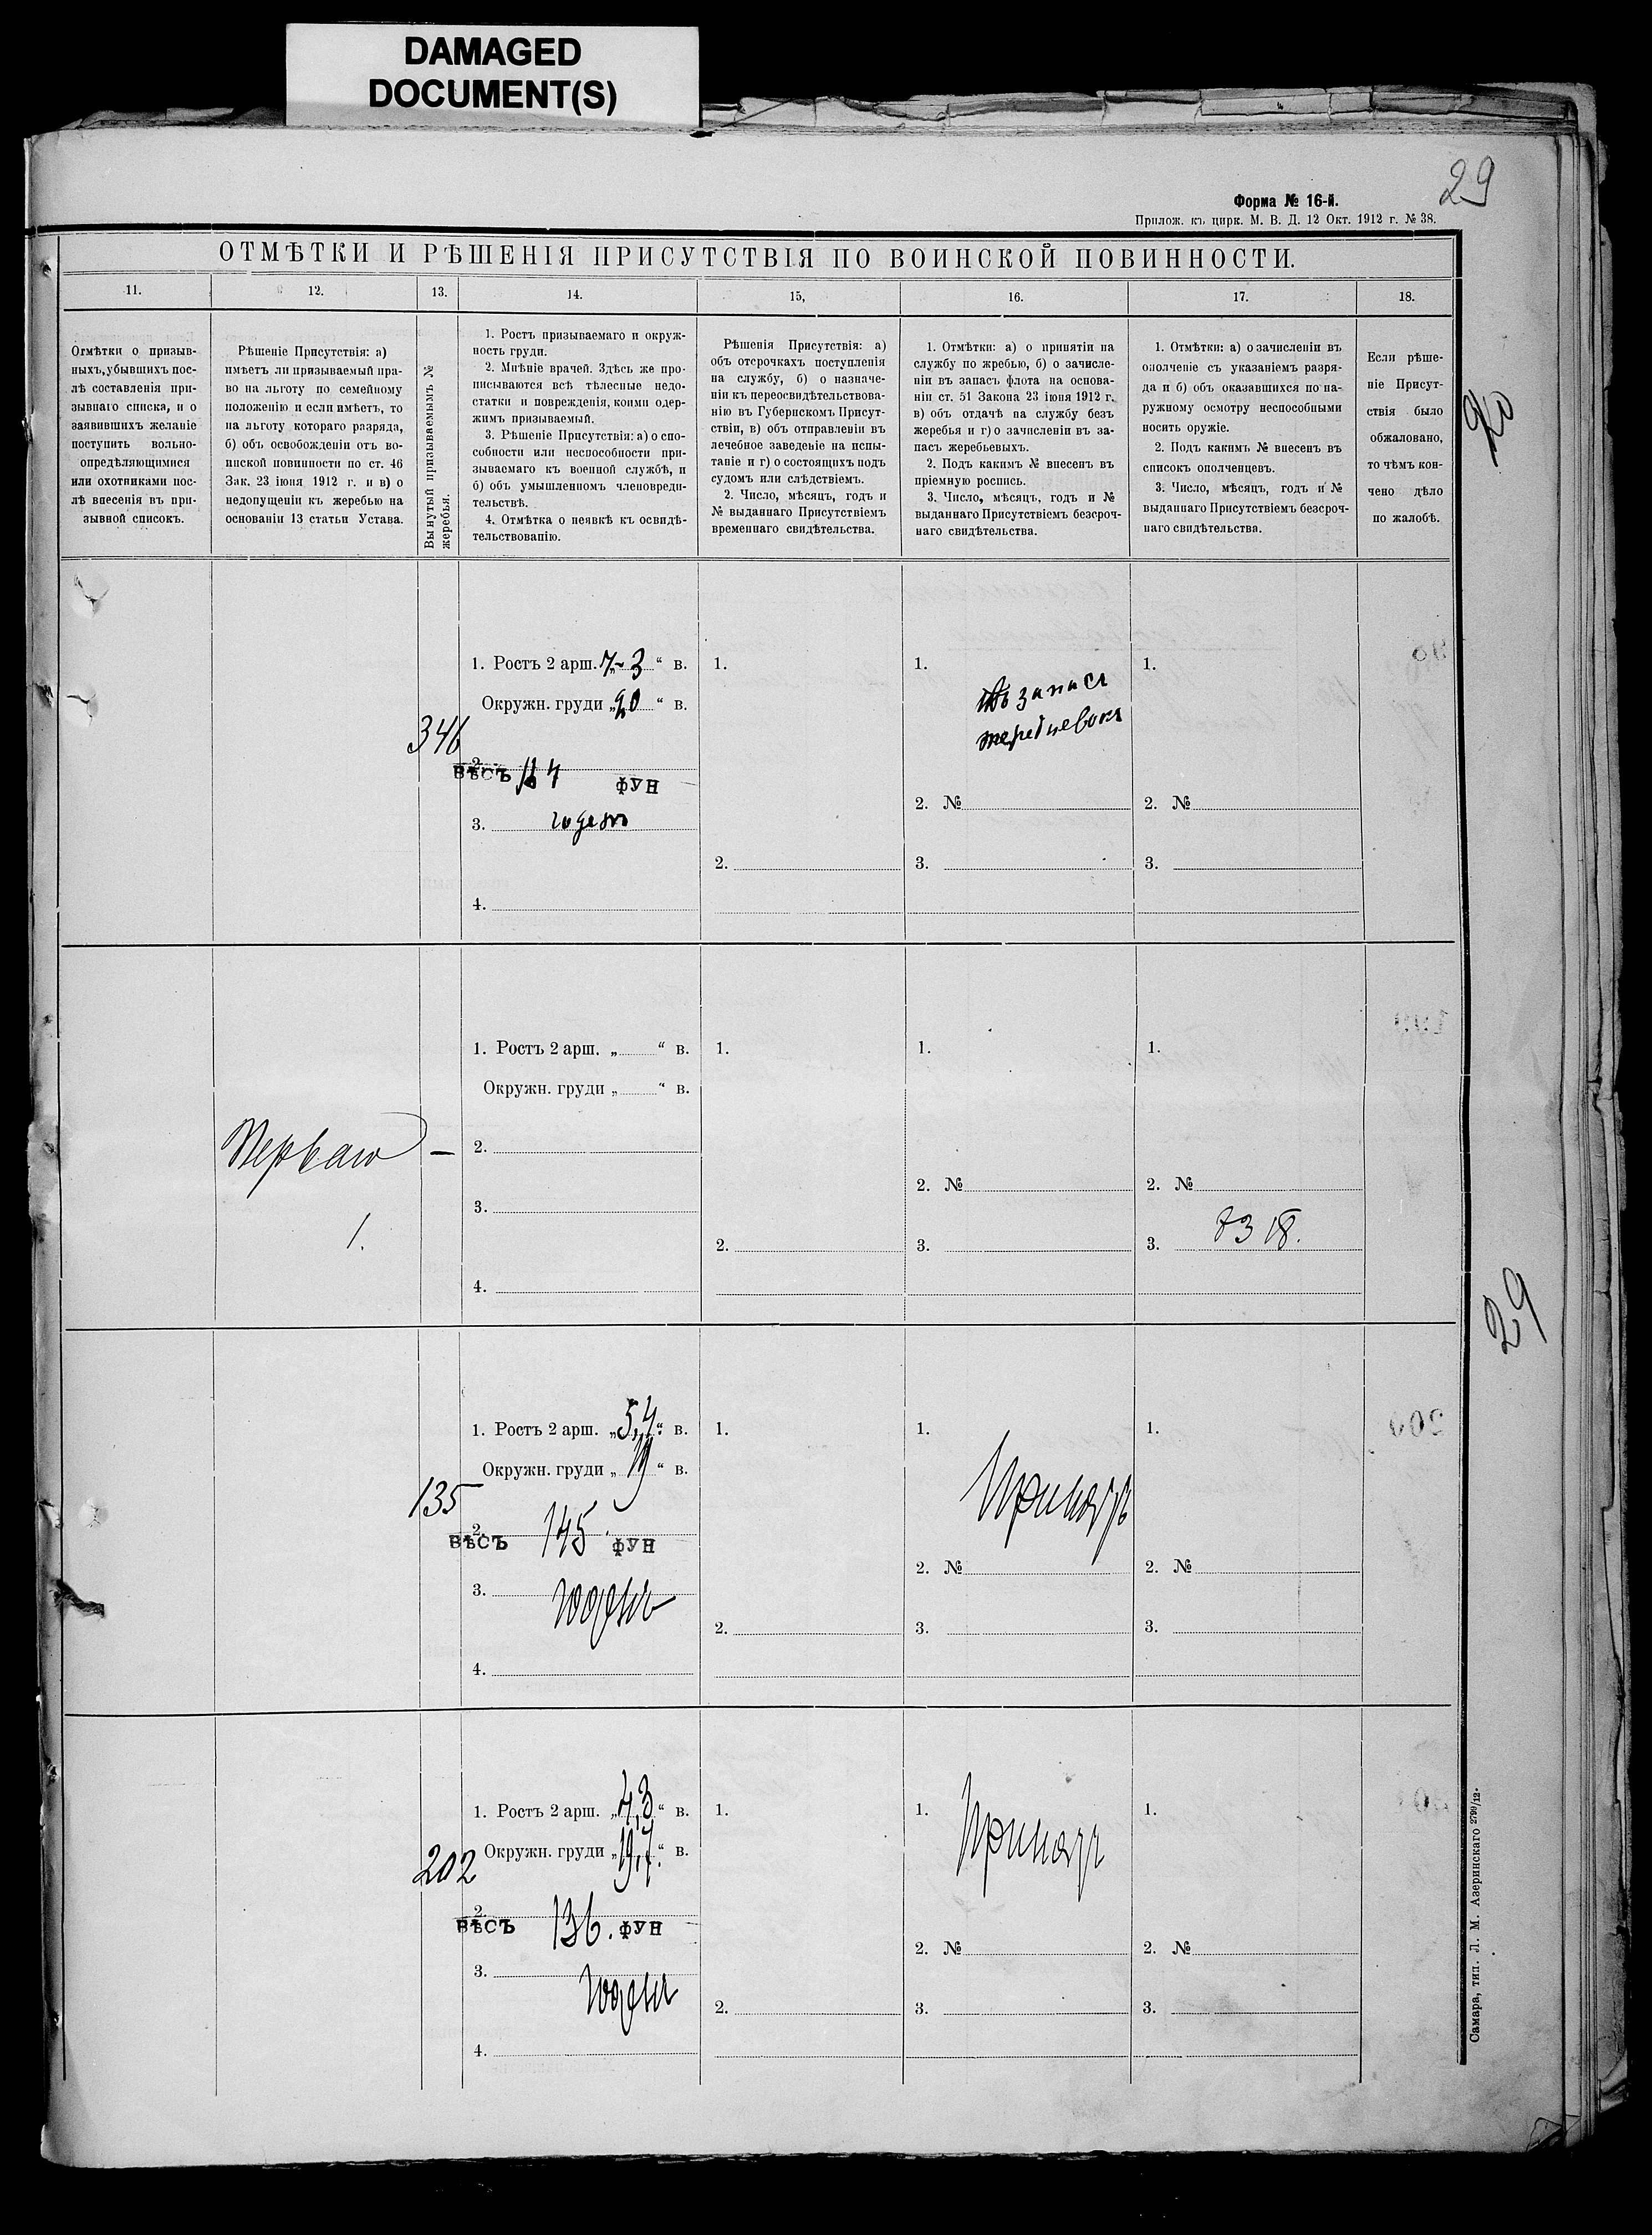 DAMAGED
DOCUMENT(S)
29
Форма № 16-й.
Прилож. къ цирк. М. В. Д. 12 Окт. 1912 г. № 38.
ОТМѢТКИ И РѢШЕНІЯ ПРИСУТСТВІЯ ПО ВОИНСКОЙ ПОВИННОСТИ.
11.
12.
13.
14.
15,
16.
17.
18.
Отмѣтки о призыв-
ныхъ, убывшихъ пос-
лѣ составленія при-
зывнаго списка, и о
заявившихъ желаніе
поступить вольно-
опредѣляющимися
или охотниками пос-
лѣ внесенія въ при-
зывной списокъ.
Рѣшеніе Присутствія: а)
имѣетъ ли призываемый пра-
во на льготу по семейному
положенію и если имѣетъ, то
на льготу котораго разряда,
б) объ освобожденіи отъ во-
инской повинности по ст. 46
Зак. 23 іюня 1912 г. и в) о
недопущеніи къ жеребью на
основаніи 13 статьи Устава.
Вынутый призываемымъ №
жеребья.
1. Ростъ призываемаго и окруж-
ность груди.
2. Мнѣніе врачей. Здѣсь же про-
писываются всѣ тѣлесные недо-
статки и поврежденія, коими одер-
жимъ призываемый.
3. Рѣшеніе Присутствія: а) о спо-
собности или неспособности при-
зываемаго къ военной службѣ, и
б) объ умышленномъ членовреди-
тельствѣ.
4. Отмѣтка о неявкѣ къ освидѣ-
тельствованію.
Рѣшенія Присутствія: а)
объ отсрочкахъ поступленія
на службу, б) о назначе-
ніи къ переосвидѣтельствова-
нію въ Губернскомъ Присут-
ствіи, в) объ отправленіи въ
лечебное заведеніе на испы-
таніе и г) о состоящихъ подъ
судомъ или слѣдствіемъ.
2. Число, мѣсяцъ, годъ и
№ выданнаго Присутствіемъ
временнаго свидѣтельства.
1. Отмѣтки: а) о принятіи на
службу по жребью, б) о зачисле-
ніи въ запасъ флота на основа-
ніи ст. 51 Закона 23 іюня 1912 г.
в) объ отдачѣ на службу безъ
жеребья и г) о зачисленіи въ за-
пасъ жеребьевыхъ.
2. Подъ какимъ № внесенъ въ
пріемную роспись.
3. Число, мѣсяцъ, годъ и №
выданнаго Присутствіемъ безсроч-
наго свидѣтельства.
1. Отмѣтки: а) о зачисленіи въ
ополченіе съ указаніемъ разря-
да и б) объ оказавшихся по на-
ружному осмотру неспособными
носить оружіе.
2. Подъ какимъ № внесенъ въ
списокъ ополченцевъ.
3. Число, мѣсяцъ, годъ и №
выданнаго Присутствіемъ безсроч-
наго свидѣтельства.
Если рѣше-
ніе Присут-
ствія было
обжаловано,
то чѣмъ кон-
чено дѣло
по жалобѣ.
346
1. Ростъ 2 арш. 7-3 " в.
Окружн. груди „20 " в.
2.
ВѢСЪ ФУН
3. годенъ
4.
1.
2.
1.
запасъ
2. №
3.
1.
2. №
3.
Перваго —
1.
1. Ростъ 2 арш. „ " в.
Окружн. груди „ " в.
2.
3.
4.
1.
2.
1.
2. №
3.
1.
2. №
3. 7318.
29
135
1. Ростъ 2 арш. „5,4" в.
Окружн. груди „19 " в.
2.
ВѢСЪ 145 ФУН
3. годенъ
4.
1.
2.
1.
Принятъ
2. №
3.
1.
2. №
3.
202
1. Ростъ 2 арш. „4,3 " в.
Окружн. груди „19,7" в.
2.
ВѢСЪ 136. ФУН
3. годенъ
4.
1.
2.
1.
Принятъ
2. №
3.
1.
2. №
3.
Самара, тип. Л. М. Азеринскаго 2799/12.